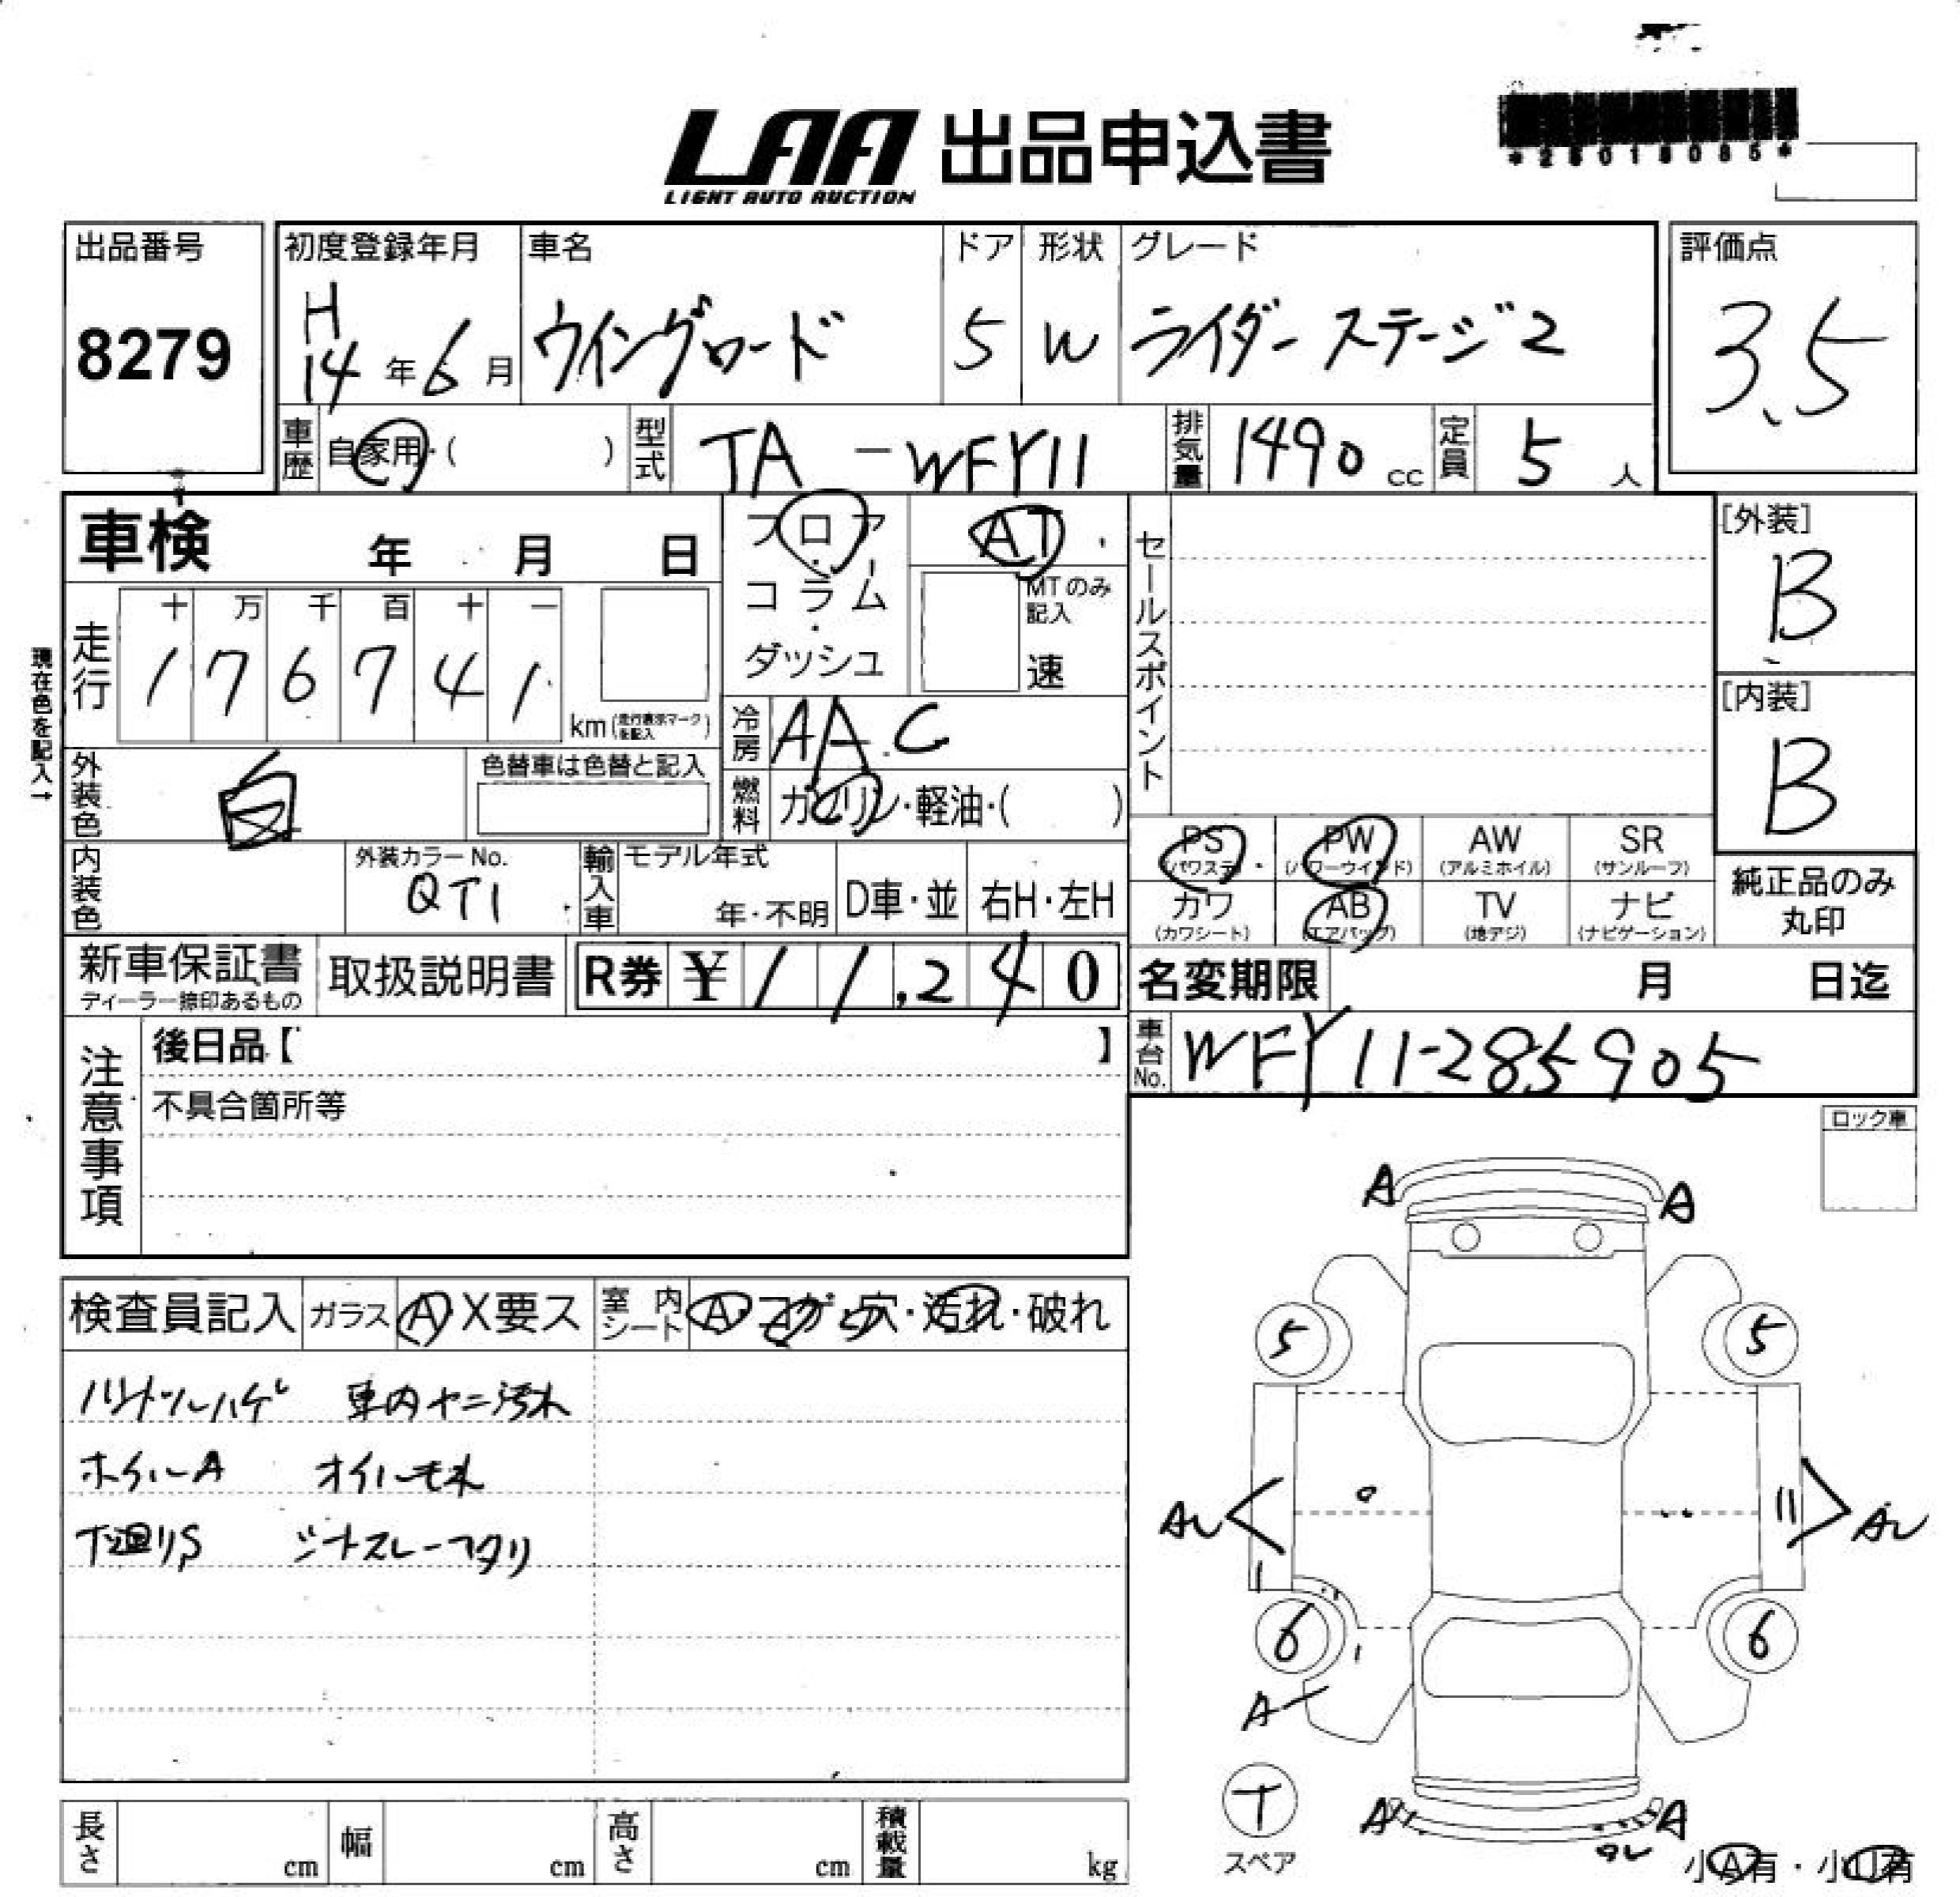 LAA 出品申込書
LIGHT AUTO AUCTION
出品番号
8279
初度登録年月
H
14年6月
車名
ウイングロード
ドア
5
形状
W
グレード
ライダー ステージ2
評価点
3.5
車歴 自家用・( )
型式 TA-WFY11
排気量 1490 cc
定員 5 人
車検 年 月 日
フロア・コラム・ダッシュ
AT・
MTのみ記入
速
現在色を記入→
走行
十 万 千 百 十 一
1 7 6 7 4 1
km (走行表示マークを記入)
冷房 AAC
外装色 白
色替車は色替と記入
燃料 ガソリン・軽油・( )
内装色
外装カラーNo.
QT1
輸入車 モデル年式
年・不明
D車・並
右H・左H
セールスポイント
[外装]
B
[内装]
B
PS PW AW SR
(パワステ) (パワーウインド) (アルミホイル) (サンルーフ)
カワ AB TV ナビ
(カワシート) (エアバッグ) (地デジ) (ナビゲーション)
純正品のみ
丸印
新車保証書
ディーラー捺印あるもの
取扱説明書
R券 ¥11,240
名変期限 月 日迄
車台No. WFY11-285905
注意事項
後日品【 】
不具合箇所等
ロック車
検査員記入
ガラス A X要ス
室内シート A・コゲ・穴・汚れ・破れ
ハンドルハゲ 車内ヤニ汚れ
ホイルA オイルモレ
下廻りS
A A
5 5
AU AU
6 6
A
T
スペア
A A
小A有・小U有
長さ cm
幅 cm
高さ cm
積載量 kg